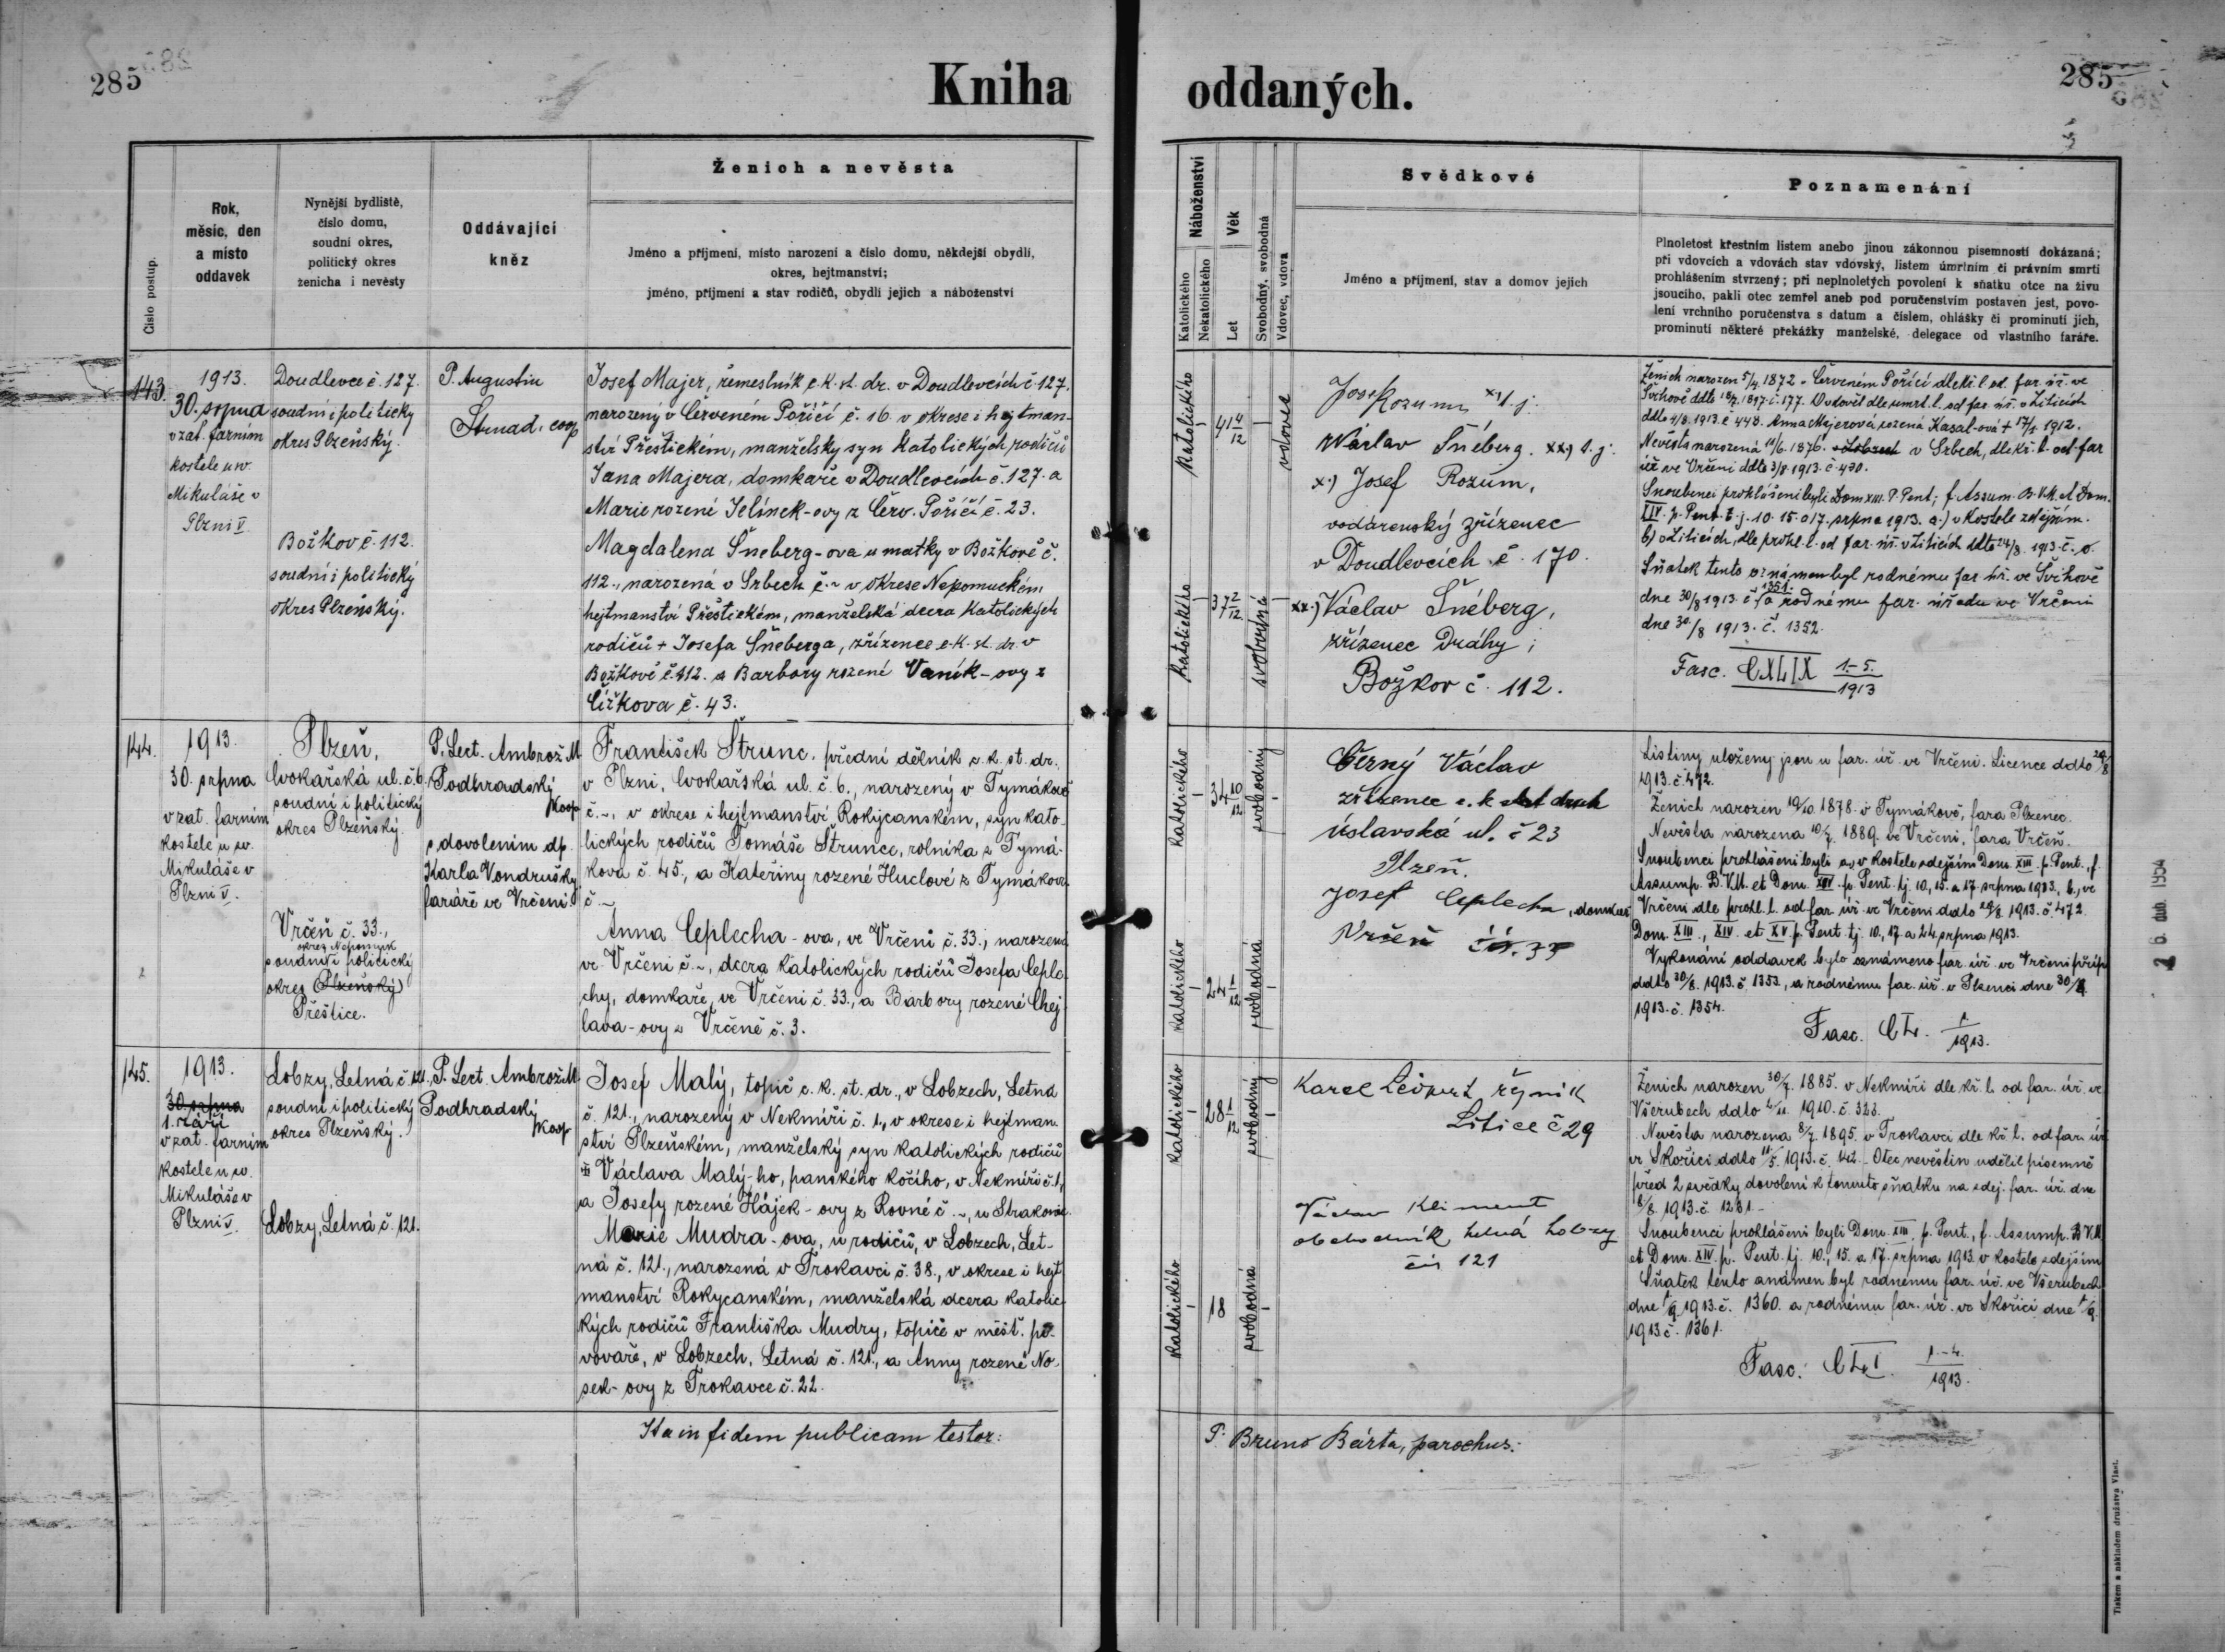 285
Kniha
oddaných.
285
Číslo postup.
Rok,
měsíc, den
a místo
oddavek
Nynější bydliště,
číslo domu,
soudní okres,
politický okres
ženicha i nevěsty
Oddávající
kněz
Ženich a nevěsta
Jméno a příjmení, místo narození a číslo domu, někdejší obydlí,
okres, hejtmanství;
jméno, příjmení a stav rodičů, obydlí jejich a náboženství
Náboženství
Katolického
Nekatolického
Věk
Let
Svobodný, svobodná
Vdovec, vdova
Svědkové
Jméno a příjmení, stav a domov jejich
Poznamenání
Plnoletost křestním listem anebo jinou zákonnou písemností dokázaná;
při vdovcích a vdovách stav vdovský, listem úmrtním či právním smrti
prohlášením stvrzený; při neplnoletých povolení k sňatku otce na živu
jsoucího, pakli otec zemřel aneb pod poručenstvím postaven jest, povo-
lení vrchního poručenstva s datum a číslem, ohlášky či prominutí jich,
prominutí některé překážky manželské, delegace od vlastního faráře.
143.
1913.
30. srpna
v zat. farním
kostele u sv.
Mikuláše v
Plzni V.
Doudlevce č. 127.
soudní i politický
okres Plzeňský.
Božkov č. 112.
soudní i politický
okres Plzeňský.
P. Augustin
Strnad, coop
Josef Majer, řemeslník c. k. st. dr. v Doudlevcích č. 127.
narozený v Červeném Poříčí č. 16. v okrese i hejtman-
ství Přeštickém, manželský syn katolických rodičů
Jana Majera, domkaře v Doudlevcích č. 127. a
Marie rozené Jelínek-ovy z Červ. Poříčí č. 23.
Magdalena Šneberg-ova u matky v Božkově č.
112., narozená v Srbech č. ~ v okrese Nepomuckém
hejtmanství Přeštickém, manželská dcera katolických
rodičů + Josefa Šneberga, zřízence c. k. st. dr. v
Božkově č. 112. a Barbory rozené Vaník-ovy z
Čížkova č. 43.
Katolického
41 4/12
vdovec
Katolického
37 2/12
svobodná
Josef Rozum x) t. j.
Václav Šnéberg. xx) t. j.
x) Josef Rozum,
vodárenský zřízenec
v Doudlevcích č. 170.
xx) Václav Šnéberg,
zřízenec dráhy;
Božkov č. 112.
Ženich narozen 5/4. 1872 v Červeném Poříčí dle kř. l. od far. úř. ve
Švihově ddto 18/7. 1897 č. 177. Ovdověl dle úmrt. l. od far. úř. v Liticích
ddto 4/8. 1913. č. 448. Anna Majerová, rozená Kasal-ová + 17/1 1912.
Nevěsta narozená 11/6. 1876. v Srbech, dle kř. l. od far
úř. ve Vrčeni ddto 3/8. 1913. č. 430.
Snoubenci prohlášeni byli Dom XIII. P. Pent; f. Assum. B. V. M. et Dom.
XIV. p. Pent. t. j. 10. 15. a 17. srpna 1913. a.) v kostele zdejším.
b) v Liticích, dle prohl. l. od far. úř. v Liticích ddto 24/8. 1913. č.
Sňatek tento oznámen byl rodnému far. úř. ve Švihově
dne 30/8 1913. č. 1351. a rodnému far. úřadu ve Vrčeni
dne 30/8 1913. č. 1352.
Fasc. CXLIX 1.-5./1913
144.
1913.
30. srpna
v zat. farním
kostele u sv.
Mikuláše v
Plzni V.
Plzeň,
Cvokařská ul. č. 6.
soudní i politický
okres Plzeňský.
Vrčeň č. 33.,
okres Nepomuk
soudní i politický
okres (Plzeňský)
Přeštice.
P. Lect. Ambrož M.
Podhradský
Koop
s dovolením dp.
Karla Vondrušky
faráře ve Vrčeni.
František Štrunc, přední dělník c. k. st. dr.
v Plzni, Cvokařská ul. č. 6., narozený v Tymákově
č. ~, v okrese i hejtmanství Rokycanském, syn kato-
lických rodičů Tomáše Štrunce, rolníka z Tymá-
kova č. 45., a Kateřiny rozené Huclové z Tymákova
č. ~
Anna Ceplecha-ova, ve Vrčeni č. 33., narozená
ve Vrčeni č. ~, dcera katolických rodičů Josefa Ceple-
chy, domkaře, ve Vrčeni č. 33., a Barbory rozené Chej-
lava-ovy z Vrčeně č. 3.
Katolického
34 10/12
svobodný
Katolického
24 1/12
svobodná
Černý Václav
zřízenec c. k. stát drah
Úslavská ul. č 23
Plzeň.
Josef Ceplecha, domkař
Vrčeň čís. 33
Listiny uloženy jsou u far. úř. ve Vrčeni. Licence ddto 29/8
1913. č. 472.
Ženich narozen 19/10. 1878. v Tymákově, fara Plzenec.
Nevěsta narozena 10/7. 1889. ve Vrčeni, fara Vrčeň.
Snoubenci prohlášeni byli a., v kostele zdejším Dom. XIII p. Pent., f.
Assump. B. V. M. et Dom. XIV. p. Pent. tj. 10., 15. a 17. srpna 1913., b., ve
Vrčeni dle prohl. l. od far. úř. ve Vrčeni ddto 29/8. 1913. č. 472.
Dom. XIII., XIV. et XV. p. Pent tj. 10., 17. a 24. srpna 1913.
Vykonání oddavek bylo oznámeno far. úř. ve Vrčeni
ddto 30/8. 1913. č. 1353., a rodnému far. úř. v Plzenci dne 30/8.
1913. č. 1354.
Fasc. CL. 1/1913.
145.
1913.
30. srpna
1. září
v zat. farním
kostele u sv.
Mikuláše v
Plzni V.
Lobzy, Letná č. 121.,
soudní i politický
okres Plzeňský.
Lobzy, Letná č. 121.
P. Lect. Ambrož M.
Podhradský
Koop
Josef Malý, topič c. k. st. dr., v Lobzech, Letná
č. 121., narozený v Nekmíři č. 1., v okrese i hejtman-
ství Plzeňském, manželský syn katolických rodičů
Václava Malý-ho, panského kočího, v Nekmíři č. 1.,
a Josefy rozené Hájek-ovy z Rovné č. ~, u Strakonic.
Marie Mudra-ova, u rodičů, v Lobzech, Let-
ná č. 121., narozená v Trokavci č. 38., v okrese i hejt
manství Rokycanském, manželská dcera katolic-
kých rodičů Františka Mudry, topiče v měšť. pi-
vovaře, v Lobzech, Letná č. 121., a Anny rozené No-
sek-ovy z Trokavce č. 22.
Katolického
28 1/12
svobodný
Katolického
18
svobodná
Karel Leopert řezník
Litice č 29
Václav Kliment
obchodník, Letná Lobzy
čís 121
Ženich narozen 30/7. 1885. v Nekmíři dle kř. l. od far. úř. ve
Všerubech ddto 4/11. 1910. č. 323.
Nevěsta narozena 8/7. 1895. v Trokavci dle kř. l. od far. úř
ve Skořici ddto 11/5. 1913. č. 142. - Otec nevěstin udělil písemně
před 2 svědky dovolení k tomuto sňatku na zdej. far. úř. dne
8/8. 1913. č. 1231. -
Snoubenci prohlášeni byli Dom. XIII. p. Pent., f. Assump. B. V. M.
et Dom. XIV. p. Pent. tj. 10., 15. a 17. srpna 1913. v kostele zdejším
Sňatek tento oznámen byl rodnému far. úř. ve Všerubech
dne 1/9. 1913. č. 1360. a rodnému far. úř. ve Skořici dne 1/9.
1913 č. 1361.
Fasc: CLI. 1.-4./1913.
Ita in fidem publicam testor:
P. Bruno Bárta, parochus.
26. dub. 1954
Tiskem a nákladem družstva Vlast.